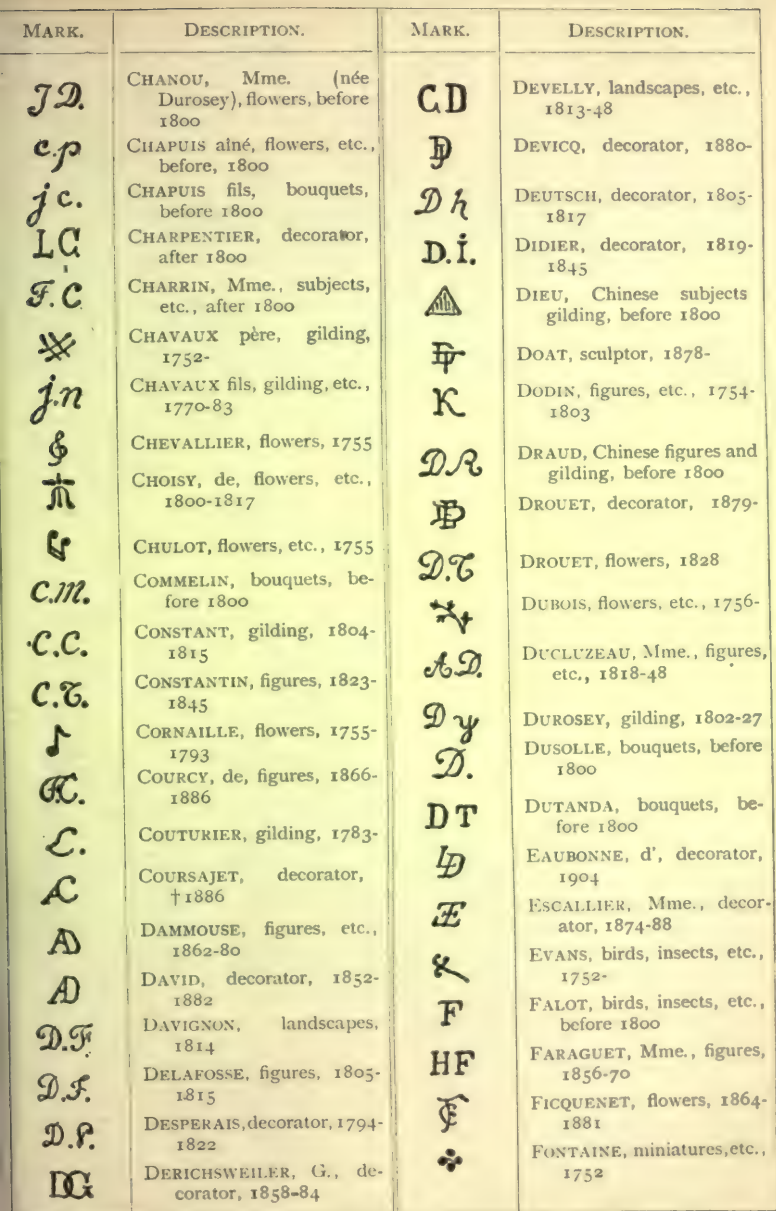 MARK. DESCRIPTION.
J.D. CHANOU, Mme. (née
Durosey), flowers, before
1800
c.p CHAPUIS aîné, flowers, etc.,
before, 1800
j c. CHAPUIS fils, bouquets,
before 1800
LC CHARPENTIER, decorator,
after 1800
F.C CHARRIN, Mme., subjects,
etc., after 1800
CHAVAUX père, gilding,
1752-
j.n CHAVAUX fils, gilding, etc.,
1770-83
CHEVALLIER, flowers, 1755
CHOISY, de, flowers, etc.,
1800-1817
CHULOT, flowers, etc., 1755
C.M. COMMELIN, bouquets, be-
fore 1800
C.C. CONSTANT, gilding, 1804-
1815
C.T. CONSTANTIN, figures, 1823-
1845
CORNAILLE, flowers, 1755-
1793
COURCY, de, figures, 1866-
1886
C. COUTURIER, gilding, 1783-
AC COURSAJET, decorator,
†1886
AD DAMMOUSE, figures, etc.,
1862-80
AD DAVID, decorator, 1852-
1882
D.F DAVIGNON, landscapes,
1814
D.F. DELAFOSSE, figures, 1805-
1815
D.P. DESPERAIS, decorator, 1794-
1822
DG DERICHSWEILER, G., de-
corator, 1858-84
MARK. DESCRIPTION.
CD DEVELLY, landscapes, etc.,
1813-48
DEVICQ, decorator, 1880-
Dh DEUTSCH, decorator, 1805-
1817
D.I. DIDIER, decorator, 1819-
1845
DIEU, Chinese subjects
gilding, before 1800
DOAT, sculptor, 1878-
K DODIN, figures, etc., 1754-
1803
DR DRAUD, Chinese figures and
gilding, before 1800
DROUET, decorator, 1879-
D.T DROUET, flowers, 1828
DUBOIS, flowers, etc., 1756-
A.D. DUCLUZEAU, Mme., figures,
etc., 1818-48
Dy DUROSEY, gilding, 1802-27
D. DUSOLLE, bouquets, before
1800
DT DUTANDA, bouquets, be-
fore 1800
EAUBONNE, d', decorator,
1904
ESCALLIER, Mme., decor-
ator, 1874-88
EVANS, birds, insects, etc.,
1752-
F FALOT, birds, insects, etc.,
before 1800
HF FARAGUET, Mme., figures,
1856-70
FICQUENET, flowers, 1864-
1881
FONTAINE, miniatures, etc.,
1752